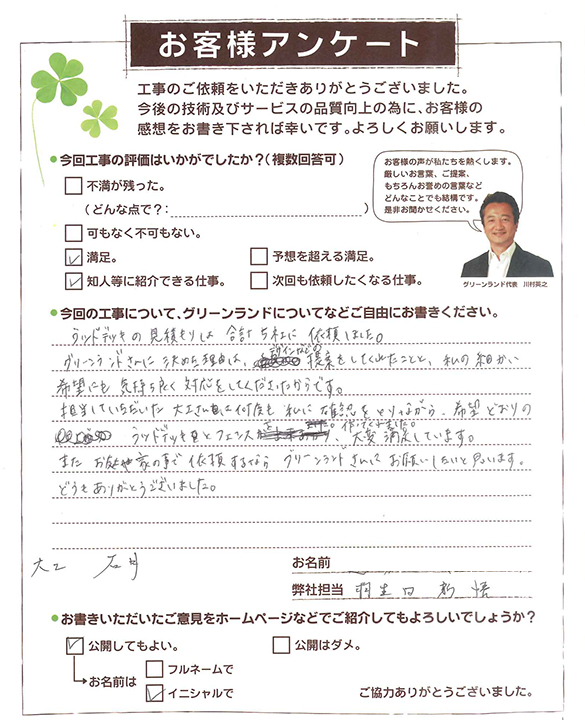 お客様アンケート
工事のご依頼をいただきありがとうございました。
今後の技術及びサービスの品質向上の為に、お客様の
感想をお書き下されば幸いです。よろしくお願いします。
今回工事の評価はいかがでしたか？(複数回答可)
不満が残った。
(どんな点で？: )
可もなく不可もない。
満足。
予想を超える満足。
知人等に紹介できる仕事。
次回も依頼したくなる仕事。
お客様の声が私たちを熱くします。
厳しいお言葉、ご提案、
もちろんお誉めの言葉など
どんなことでも結構です。
是非お聞かせください。
グリーンランド代表 川村英之
今回の工事について、グリーンランドについてなどご自由にお書きください。
ウッドデッキの見積もりは 合計5社に 依頼しました。
グリーンランドさんに 決めた理由は、デザインなどの 提案をしてくれたことと、私の細かい
希望にも 気持ち良く 対応をしてくださったからです。
担当していただいた 大工さんも 何度も 私に 確認をとりながら、希望どおりの
ウッドデッキとフェンスを 作ってくれました。大変 満足しています。
また お庭や家の事で 依頼するなら グリーンランドさんに お願いしたいと思います。
どうもありがとうございました。
大工 石
お名前
弊社担当 羽生田
お書きいただいたご意見をホームページなどでご紹介してもよろしいでしょうか？
公開してもよい。
公開はダメ。
お名前は
フルネームで
イニシャルで
ご協力ありがとうございました。